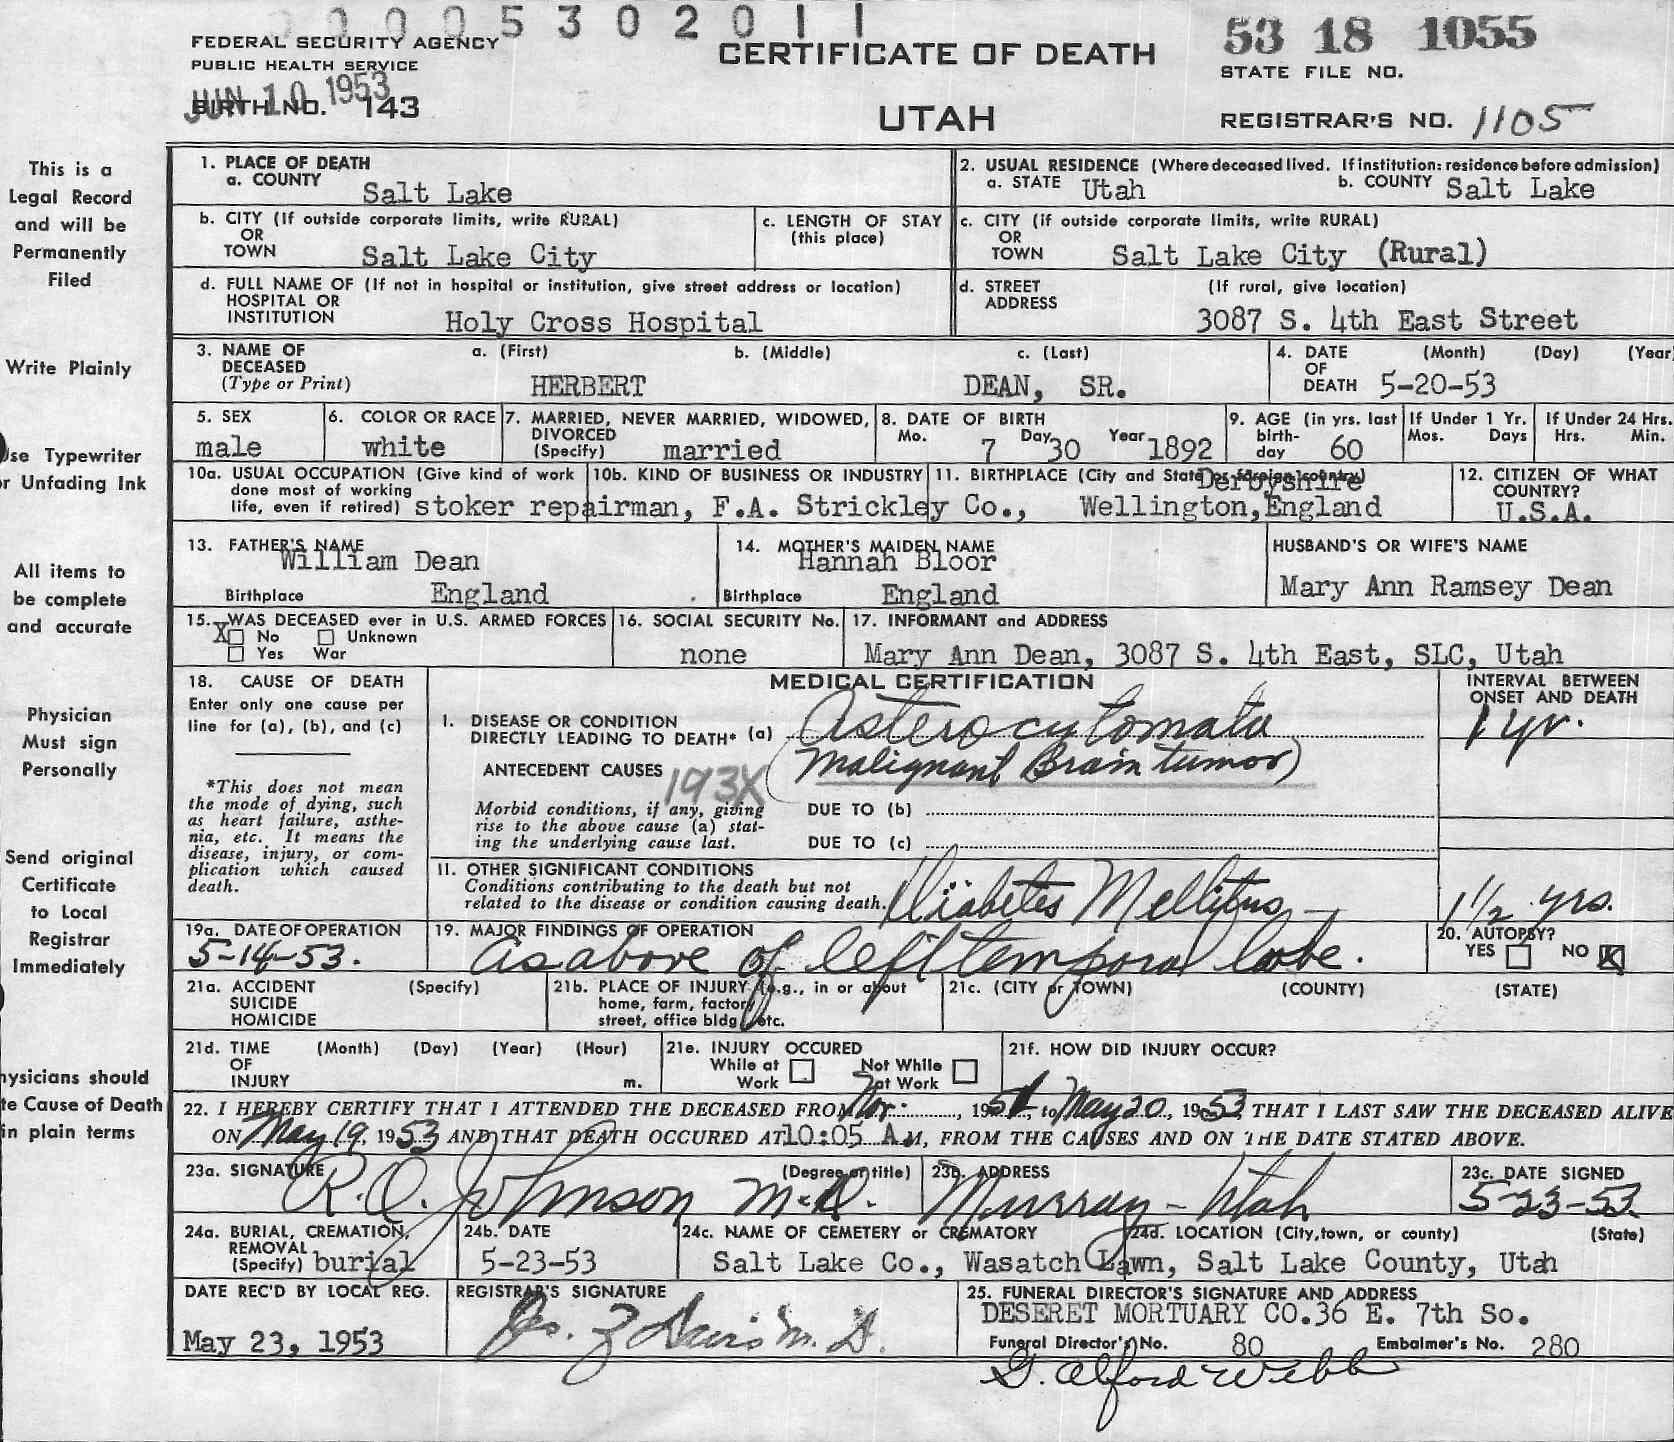 0 0 0 0 5 3 0 2 0 1 1
FEDERAL SECURITY AGENCY
PUBLIC HEALTH SERVICE
JUN 10 1953
BIRTH NO. 143
CERTIFICATE OF DEATH
UTAH
53 18 1055
STATE FILE NO.
REGISTRAR'S NO. 1105
This is a
Legal Record
and will be
Permanently
Filed
Write Plainly
se Typewriter
r Unfading Ink
All items to
be complete
and accurate
Physician
Must sign
Personally
Send original
Certificate
to Local
Registrar
Immediately
hysicians should
te Cause of Death
in plain terms
1. PLACE OF DEATH
a. COUNTY Salt Lake
2. USUAL RESIDENCE (Where deceased lived. If institution: residence before admission)
a. STATE Utah b. COUNTY Salt Lake
b. CITY (If outside corporate limits, write RURAL)
OR
TOWN Salt Lake City
c. LENGTH OF STAY
(this place)
c. CITY (if outside corporate limits, write RURAL)
OR
TOWN Salt Lake City (Rural)
d. FULL NAME OF (If not in hospital or institution, give street address or location)
HOSPITAL OR
INSTITUTION Holy Cross Hospital
d. STREET (If rural, give location)
ADDRESS
3087 S. 4th East Street
3. NAME OF a. (First) b. (Middle) c. (Last)
DECEASED
(Type or Print) HERBERT DEAN, SR.
4. DATE (Month) (Day) (Year
OF
DEATH 5-20-53
5. SEX
male
6. COLOR OR RACE
white
7. MARRIED, NEVER MARRIED, WIDOWED,
DIVORCED
(Specify) married
8. DATE OF BIRTH
Mo. 7 Day 30 Year 1892
9. AGE (in yrs. last
birth-
day 60
If Under 1 Yr.
Mos. Days
If Under 24 Hrs.
Hrs. Min.
10a. USUAL OCCUPATION (Give kind of work
done most of working
life, even if retired) stoker repairman,
10b. KIND OF BUSINESS OR INDUSTRY
F.A. Strickley Co.,
11. BIRTHPLACE (City and State or foreign country)
Derbyshire
Wellington, England
12. CITIZEN OF WHAT
COUNTRY?
U.S.A.
13. FATHER'S NAME
William Dean
Birthplace England
14. MOTHER'S MAIDEN NAME
Hannah Bloor
Birthplace England
HUSBAND'S OR WIFE'S NAME
Mary Ann Ramsey Dean
15. WAS DECEASED ever in U.S. ARMED FORCES
X No Unknown
Yes War
16. SOCIAL SECURITY No.
none
17. INFORMANT and ADDRESS
Mary Ann Dean, 3087 S. 4th East, SLC, Utah
18. CAUSE OF DEATH
Enter only one cause per
line for (a), (b), and (c)
*This does not mean
the mode of dying, such
as heart failure, asthe-
nia, etc. It means the
disease, injury, or com-
plication which caused
death.
MEDICAL CERTIFICATION
INTERVAL BETWEEN
ONSET AND DEATH
I. DISEASE OR CONDITION
DIRECTLY LEADING TO DEATH* (a) Asterocytomata
1 yr.
(Malignant Brain tumor)
ANTECEDENT CAUSES 193X
Morbid conditions, if any, giving
rise to the above cause (a) stat-
ing the underlying cause last.
DUE TO (b)
DUE TO (c)
11. OTHER SIGNIFICANT CONDITIONS
Conditions contributing to the death but not
related to the disease or condition causing death. Diabetes Mellitus -
1 1/2 yrs.
19a. DATE OF OPERATION
5-14-53.
19. MAJOR FINDINGS OF OPERATION
As above of left temporal lobe.
20. AUTOPSY?
YES NO X
21a. ACCIDENT (Specify)
SUICIDE
HOMICIDE
21b. PLACE OF INJURY (e.g., in or about
home, farm, factory
street, office bldg., etc.
21c. (CITY or TOWN) (COUNTY) (STATE)
21d. TIME (Month) (Day) (Year) (Hour)
OF
INJURY m.
21e. INJURY OCCURED
While at Not While
Work at Work
21f. HOW DID INJURY OCCUR?
22. I HEREBY CERTIFY THAT I ATTENDED THE DECEASED FROM Nov., 1951, to May 20, 1953, THAT I LAST SAW THE DECEASED ALIVE
ON May 19, 1953 AND THAT DEATH OCCURED AT 10:05 A.M, FROM THE CAUSES AND ON THE DATE STATED ABOVE.
23a. SIGNATURE (Degree or title)
R.O. Johnson M.D.
23b. ADDRESS
Murray - Utah
23c. DATE SIGNED
5-23-53.
24a. BURIAL, CREMATION,
REMOVAL
(Specify) burial
24b. DATE
5-23-53
24c. NAME OF CEMETERY or CREMATORY
Salt Lake Co., Wasatch Lawn,
24d. LOCATION (City, town, or county) (State)
Salt Lake County, Utah
DATE REC'D BY LOCAL REG.
May 23, 1953
REGISTRAR'S SIGNATURE
Jos. Z Davis M.D.
25. FUNERAL DIRECTOR'S SIGNATURE AND ADDRESS
DESERET MORTUARY CO. 36 E. 7th So.
Funeral Director's No. 80 Embalmer's No. 280
G. Alford Webb